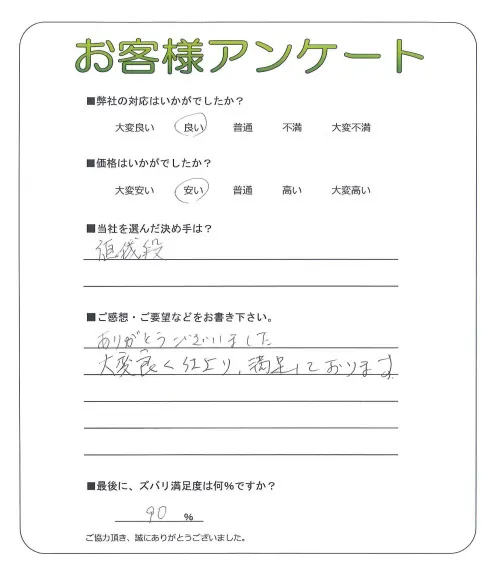 お客様アンケート
■弊社の対応はいかがでしたか？
大変良い 良い 普通 不満 大変不満
■価格はいかがでしたか？
大変安い 安い 普通 高い 大変高い
■当社を選んだ決め手は？
■ご感想・ご要望などをお書き下さい。
ありがとうございました
大変良く仕上り、満足しております。
■最後に、ズバリ満足度は何％ですか？
90 ％
ご協力頂き、誠にありがとうございました。